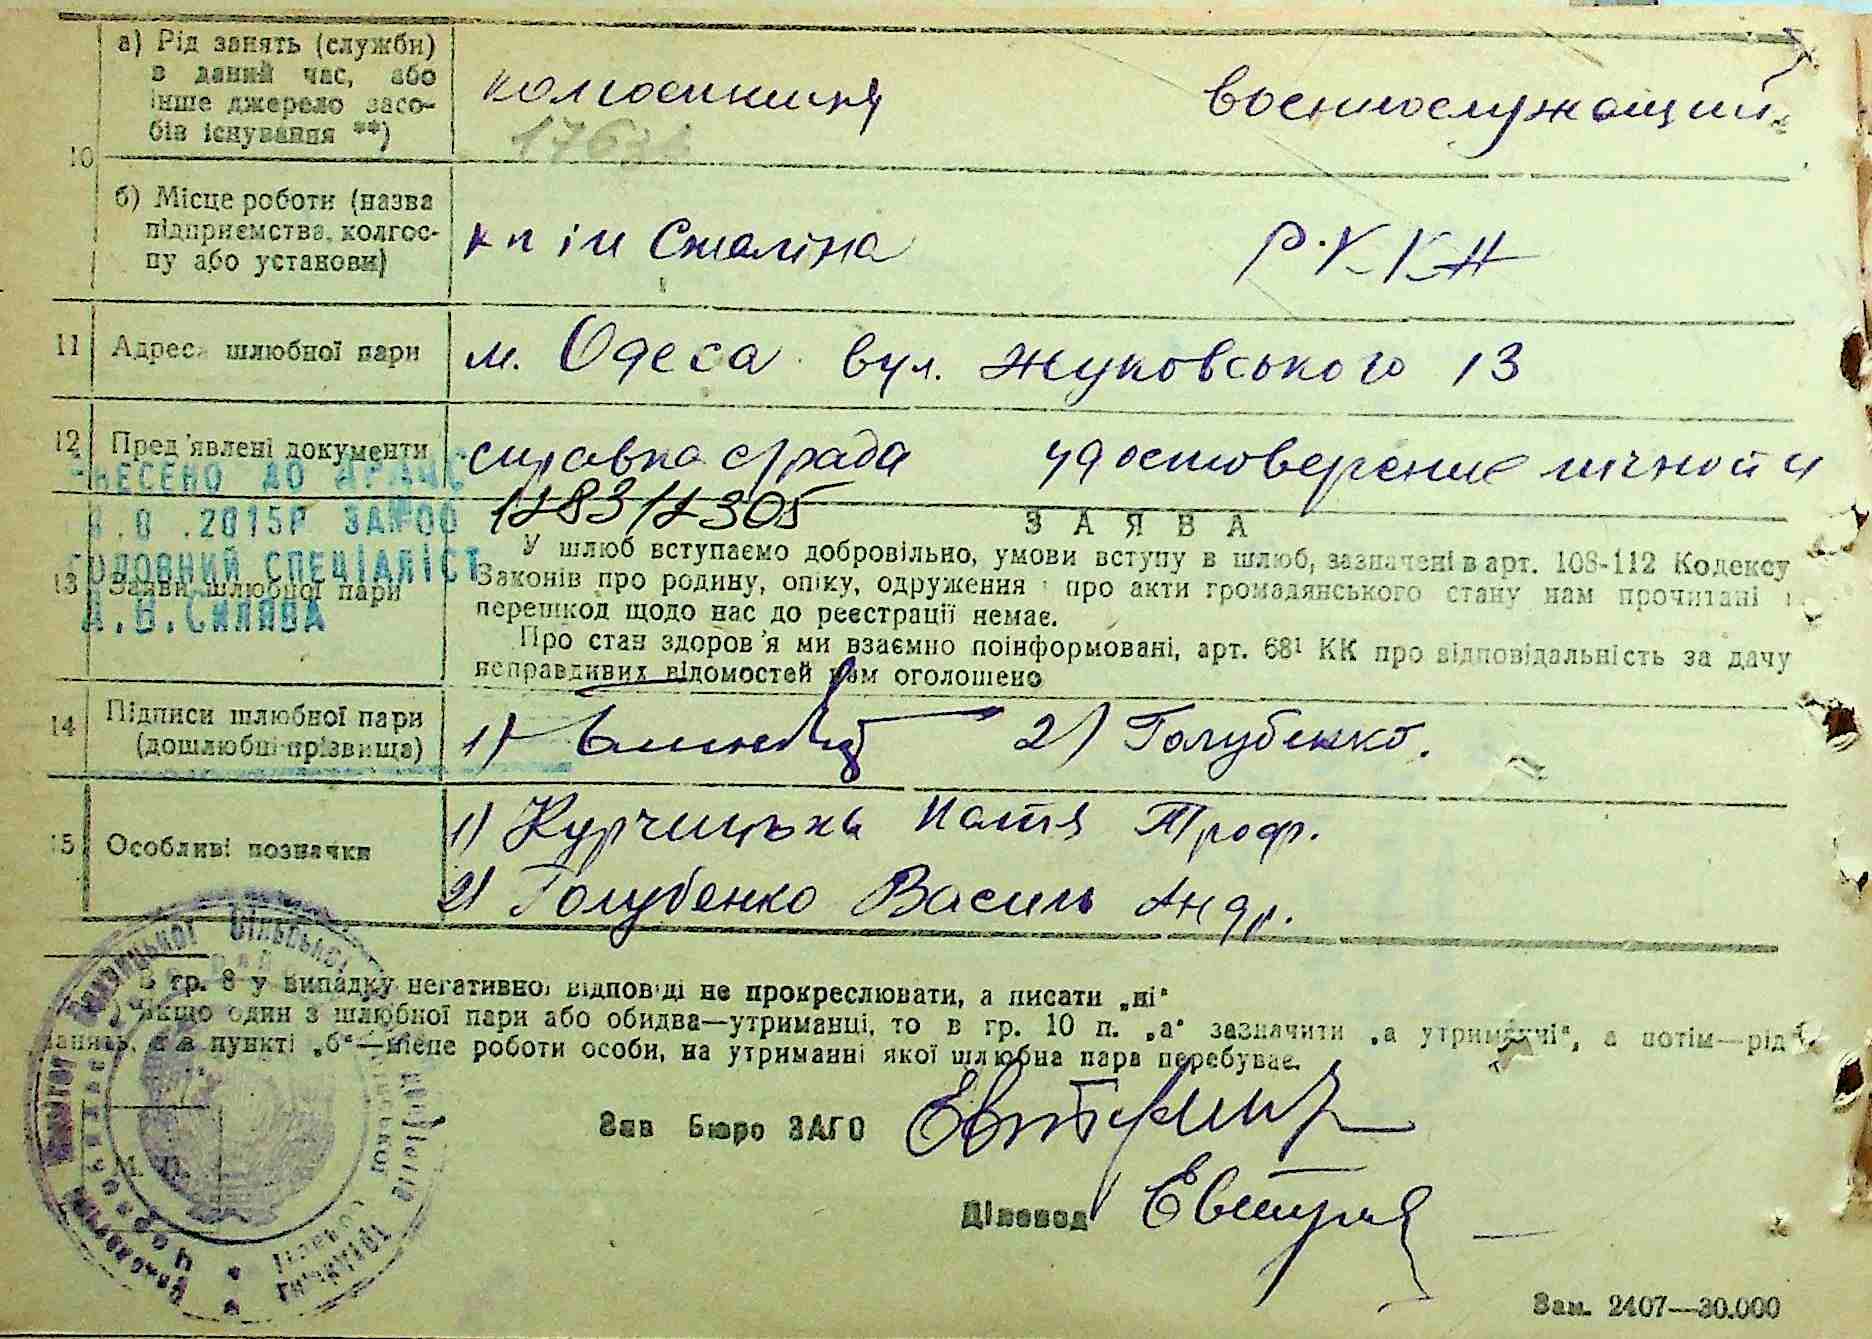 10
а) Рід занять (служби)
в даний час, або
інше джерело засо-
бів існування **)
колгоспниця
военнослужащий
б) Місце роботи (назва
підприємства, колгос-
пу або установи)
кп ім Сталіна
Р.К.К.А
11 Адреса шлюбної пари
м. Одеса вул. Жуковського 13
12 Пред'явлені документи
справка с/рада
удостоверение личной
1783/2305
ВНЕСЕНО ДО ДРАЦС
.2015Р
ГОЛОВНИЙ СПЕЦІАЛІСТ
13 Заяви шлюбної пари
ЗАЯВА
У шлюб вступаємо добровільно, умови вступу в шлюб, зазначені в арт. 108-112 Кодексу
Законів про родину, опіку, одруження і про акти громадянського стану нам прочитані і
перешкод щодо нас до реєстрації немає.
Про стан здоров'я ми взаємно поінформовані, арт. 68¹ КК про відповідальність за дачу
неправдивих відомостей нам оголошено
14 Підписи шлюбної пари
(дошлюбні прізвища)
1)
2) Голубенко.
15 Особливі позначки
1) Троф.
2) Голубенко Василь Андр.
В гр. 8 у випадку негативної відповіді не прокреслювати, а писати „ні“
) Якщо один з шлюбної пари або обидва—утриманці, то в гр. 10 п. „а“ зазначити „а утриманчі“, а потім—рід
занять, а в пункті „б“—місце роботи особи, на утриманні якої шлюбна пара перебуває.
Зав Бюро ЗАГС
Діловод
М. П.
Зам. 2407—30.000